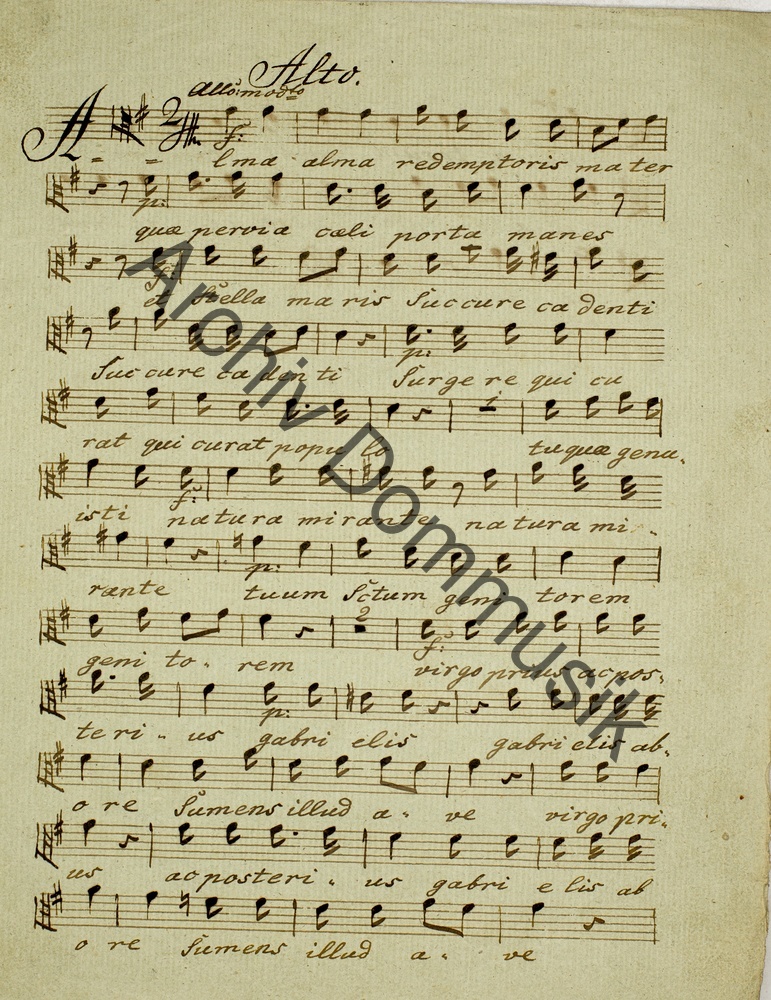 Alto.
Allo: modto
A lma alma redemptoris mater
f:
p:
quæ pervia cæli porta manes
et Stella maris Succure cadenti
p:
Succure cadenti Surgere qui cu
1
rat qui curat populo tu quæ genu-
f:
isti natura mirante natura mi -
p:
rante tuum Sctum geni torem
2
f:
geni to - rem virgo prius ac pos-
p:
teri - us gabri elis gabri elis ab-
o re Sumens illud a - ve virgo pri-
us ac posteri - us gabri elis ab
o re Sumens illud a - ve
Archiv Dommusik